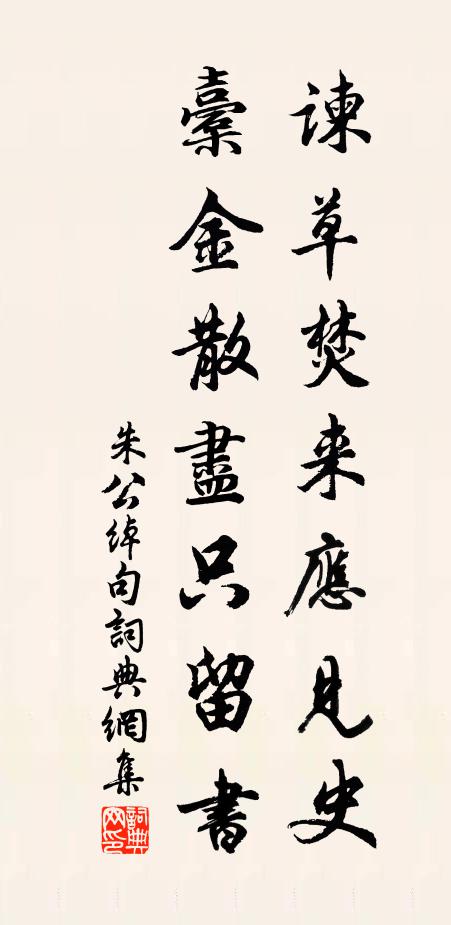 諫草焚来應見史
橐金散盡只留書
朱公綽句詞典網集
詞典网印